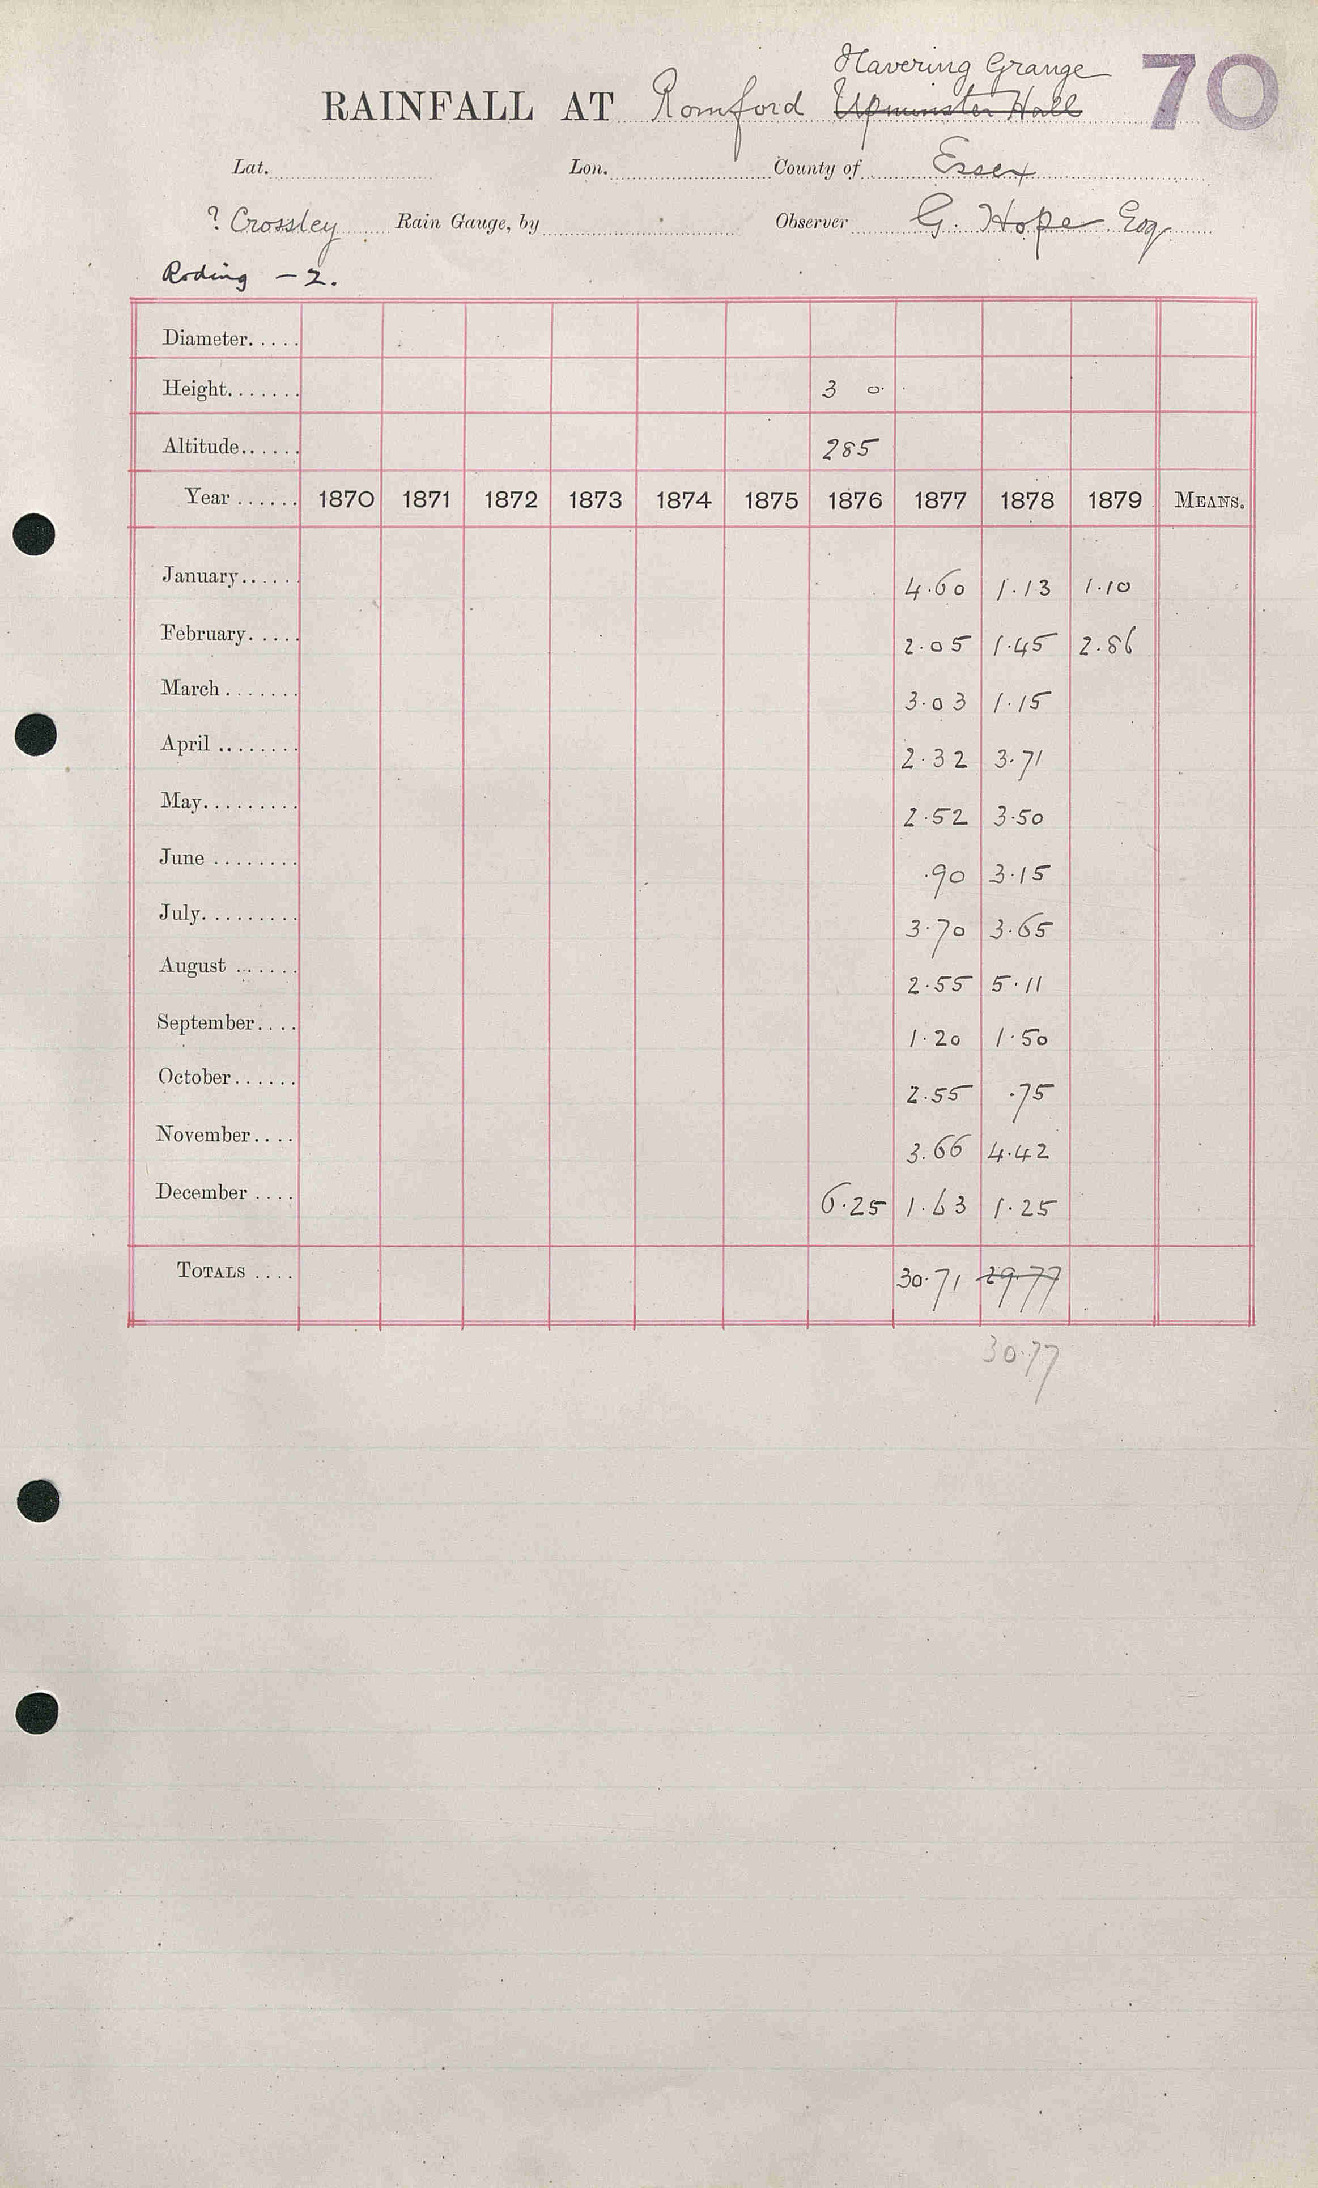 Havering Grange 70
RAINFALL AT Romford Upminster Hall
Lat. Lon. County of Essex
? Crossley Rain Gauge, by Observer G. Hope Esq
Roding - 2.
Diameter.....
Height....... 3 0
Altitude...... 285
Year ...... 1870 1871 1872 1873 1874 1875 1876 1877 1878 1879 MEANS.
January...... 4.60 1.13 1.10
February..... 2.05 1.45 2.86
March ....... 3.03 1.15
April ........ 2.32 3.71
May......... 2.52 3.50
June ........ .90 3.15
July......... 3.70 3.65
August ...... 2.55 5.11
September.... 1.20 1.50
October...... 2.55 .75
November.... 3.66 4.42
December .... 6.25 1.63 1.25
TOTALS .... 30.71 29.77
30.77